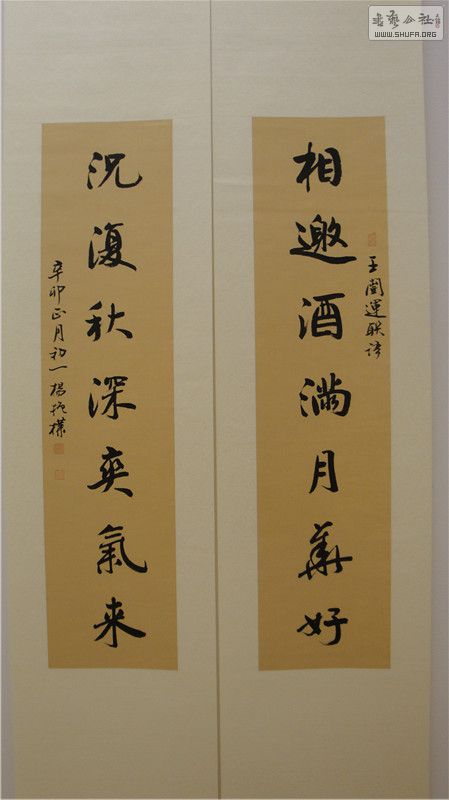 相邀酒满月華好
王闿運联语
况復秋深爽氣来
辛卯正月初一杨抱樸
書藝公社
WWW.SHUFA.ORG